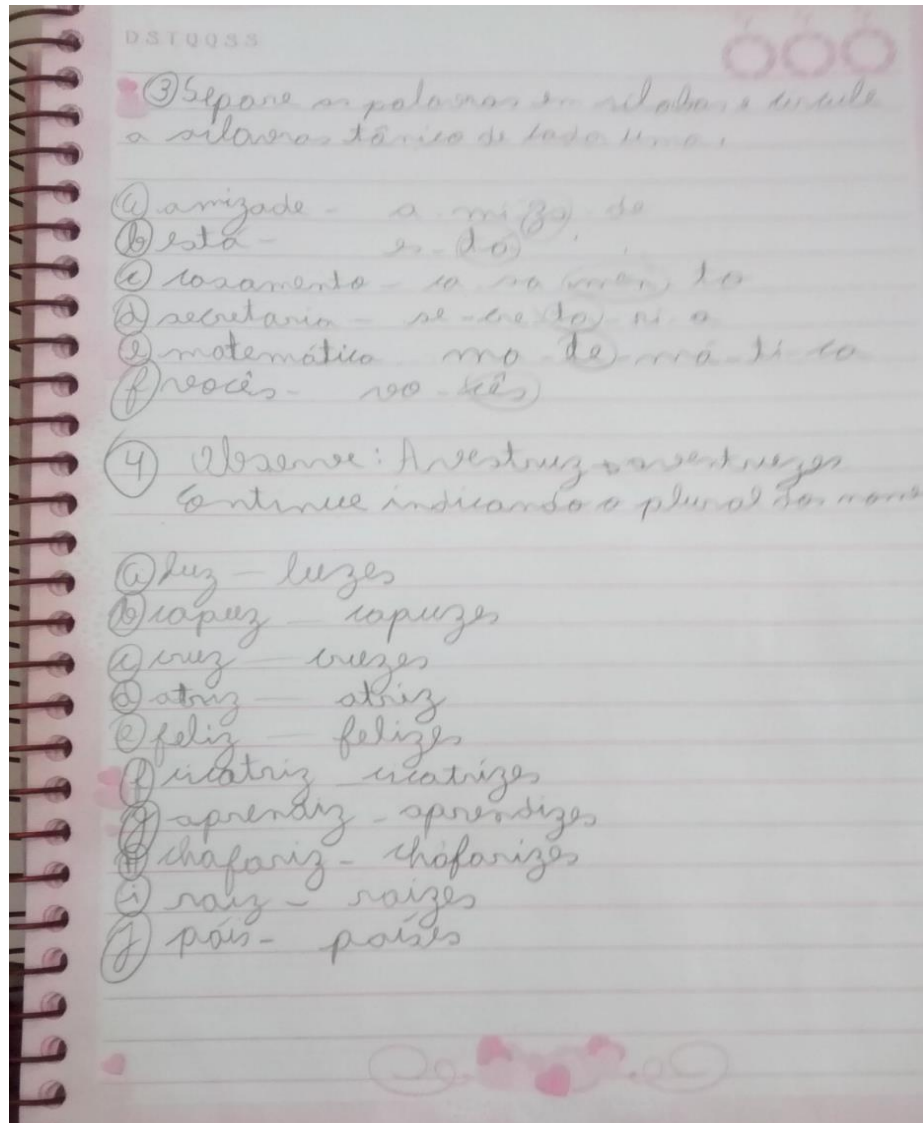 DSTQQSS
③ Separe as palavras em silabas e circule
a silavras tônica de cada uma.
ⓐ amizade - a mi za de
ⓑ está - es - da
ⓒ casamento - ca sa men to
ⓓ secretaria - se - cre ta ri a
ⓔ matemática ma - te - má ti ca
ⓕ vocês - vo - cês
④ Observe: Avestruz avestruzes
Continue indicando o plural dos nomes
ⓐ luz - luzes
ⓑ capuz - capuzes
ⓒ cruz - cruzes
ⓓ atriz - atriz
ⓔ feliz - felizes
ⓕ cicatriz cicatrizes
ⓖ aprendiz - aprendizes
ⓗ chafariz - chafarizes
ⓘ raiz - raizes
ⓙ país - países